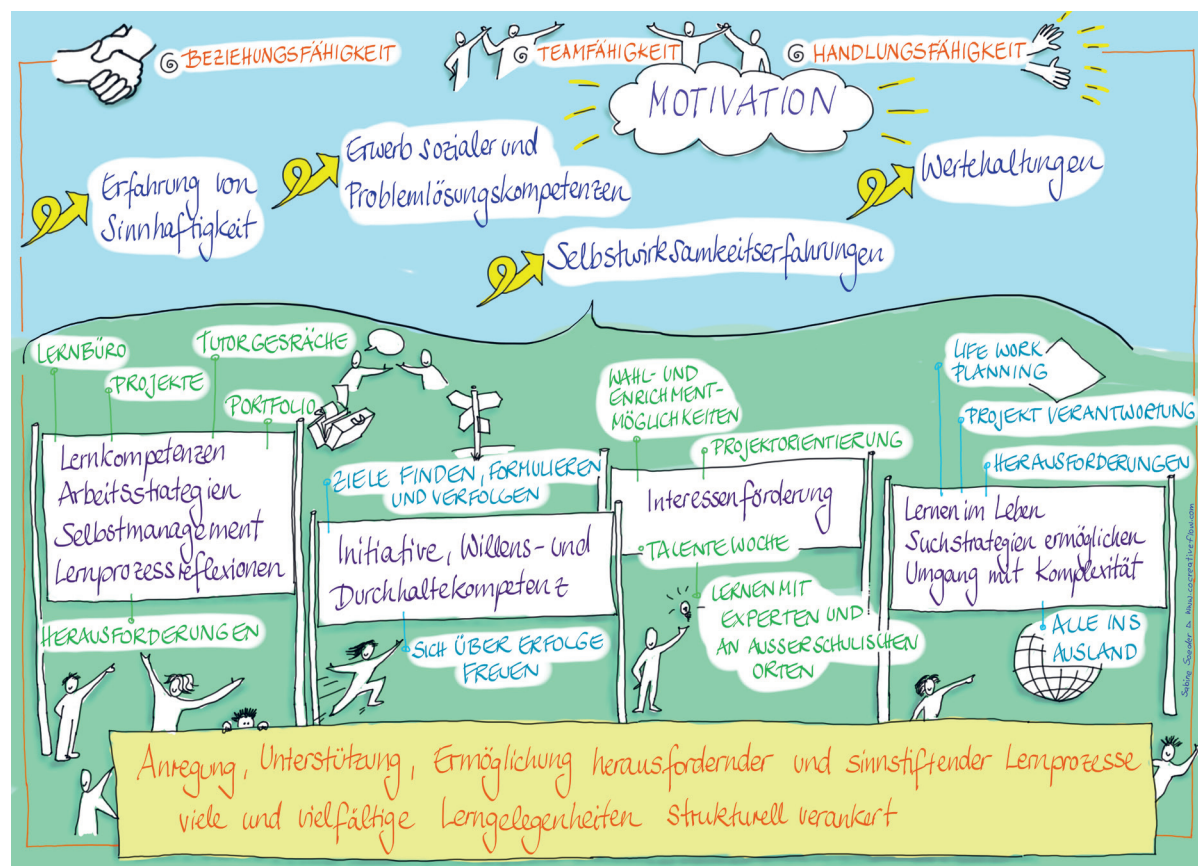 BEZIEHUNGSFÄHIGKEIT
TEAMFÄHIGKEIT
HANDLUNGSFÄHIGKEIT
MOTIVATION
Erfahrung von
Sinnhaftigkeit
Erwerb sozialer und
Problemlösungskompetenzen
Selbstwirksamkeitserfahrungen
Wertehaltungen
LERNBÜRO
PROJEKTE
TUTORGESRÄCHE
PORTFOLIO
Lernkompetenzen
Arbeitsstrategien
Selbstmanagement
Lernprozessreflexionen
HERAUSFORDERUNGEN
ZIELE FINDEN, FORMULIEREN
UND VERFOLGEN
Initiative, Willens- und
Durchhaltekompetenz
SICH ÜBER ERFOLGE
FREUEN
WAHL- UND
ENRICHMENT-
MÖGLICHKEITEN
PROJEKTORIENTIERUNG
Interessenförderung
TALENTEWOCHE
LERNEN MIT
EXPERTEN UND
AN AUSSERSCHULISCHEN
ORTEN
LIFE WORK
PLANNING
PROJEKT VERANTWORTUNG
HERAUSFORDERUNGEN
Lernen im Leben
Suchstrategien ermöglichen
Umgang mit Komplexität
ALLE INS
AUSLAND
Anregung, Unterstützung, Ermöglichung herausfordernder und sinnstiftender Lernprozesse
viele und vielfältige Lerngelegenheiten strukturell verankert
Sabine Soeder www.cocreativeflow.com